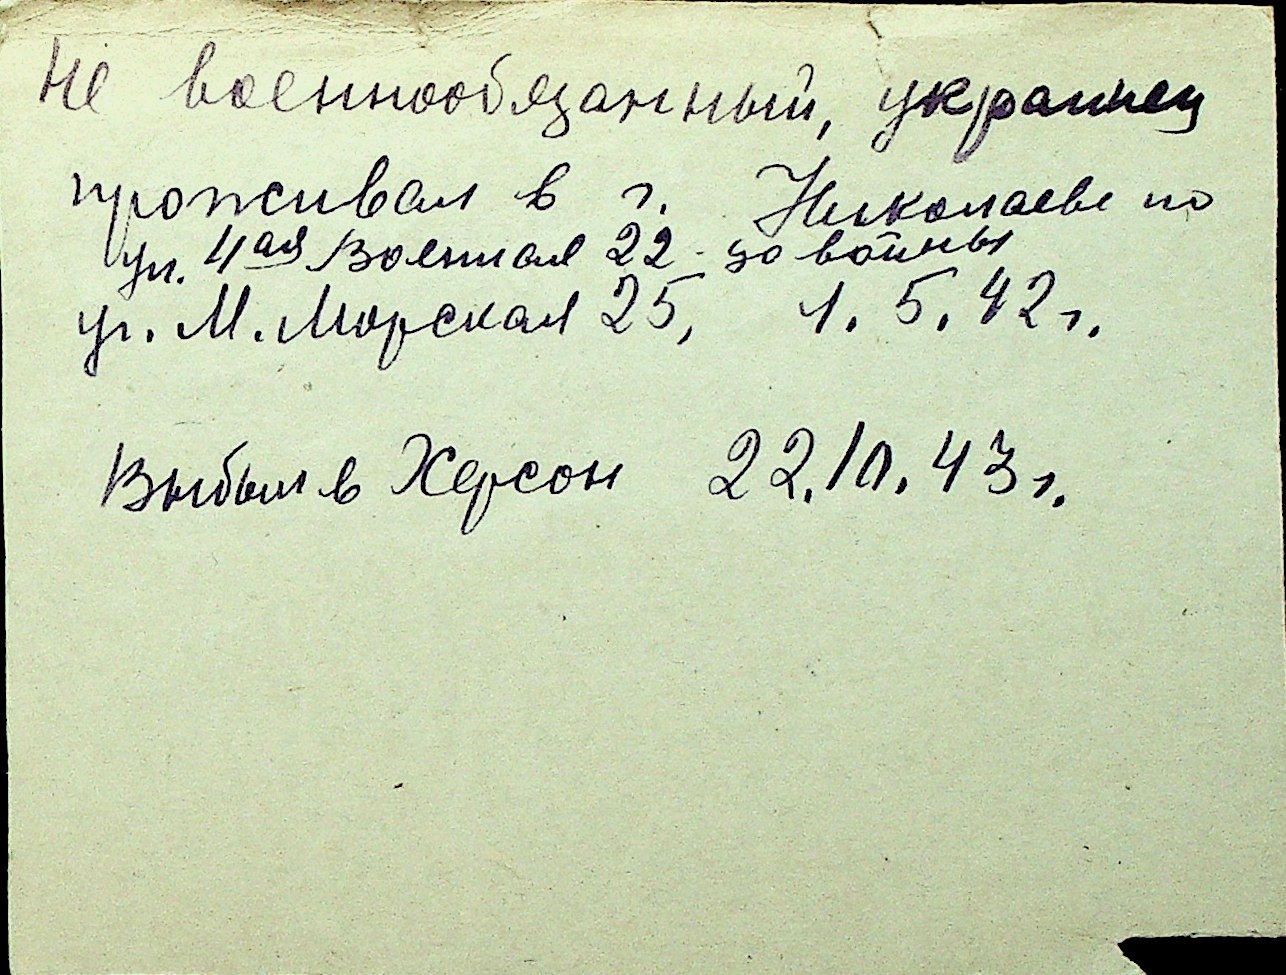 Не военнообязанный, украинец
проживал в г. Николаеве по
ул. 4ая Военная 22 - до войны
ул. М. Морская 25, 1. 5. 42 г.
Выбыл в Херсон 22. 10. 43 г.